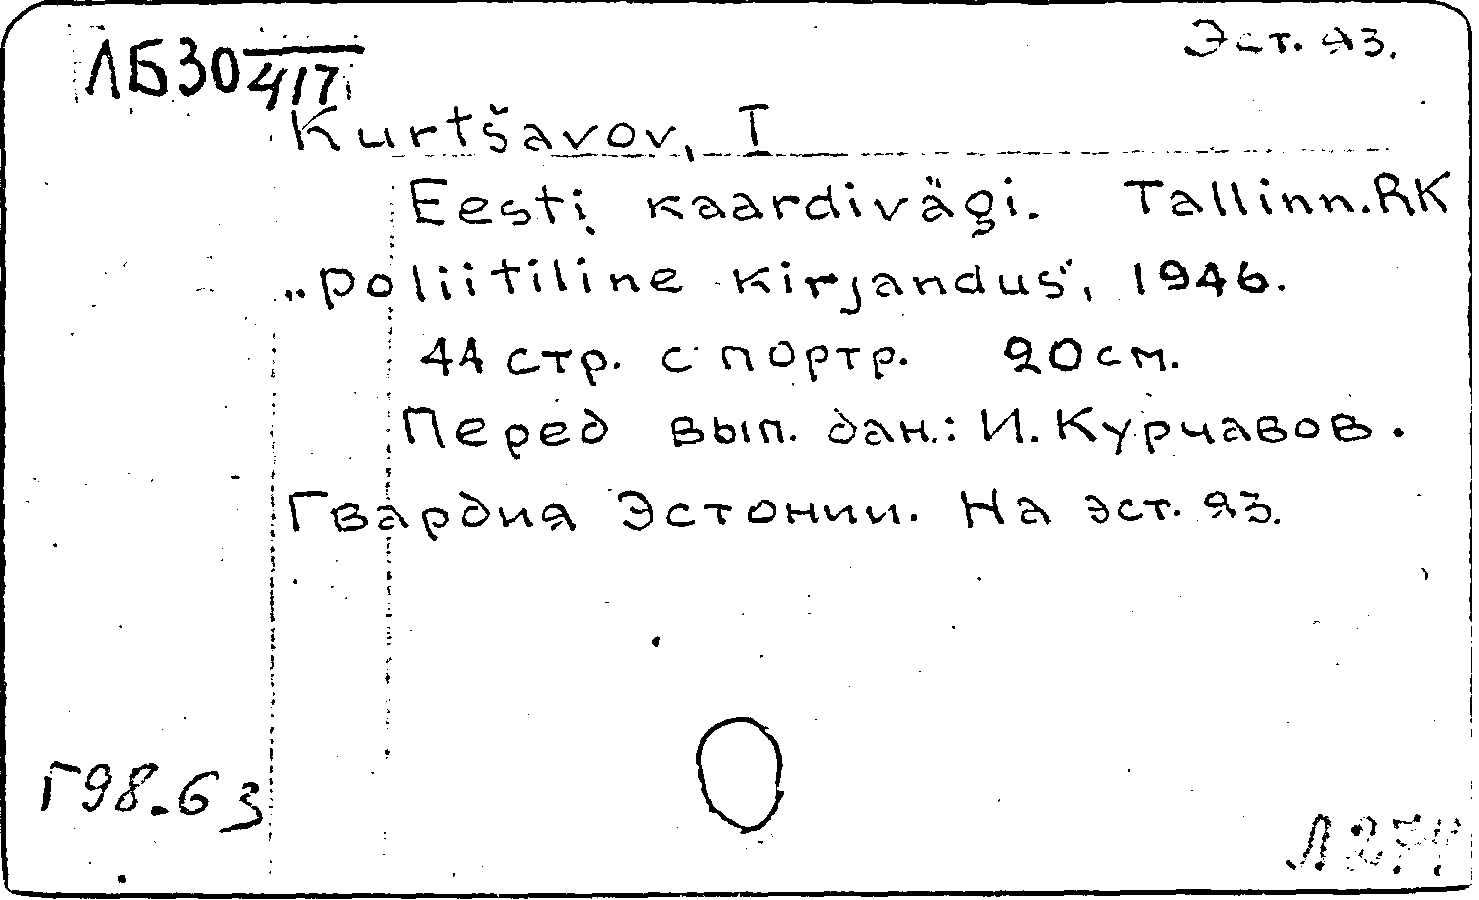 ЛБ30 417
Эст. яз.
Kurtšavov, I
Eesti kaardivägi. Tallinn. RK
„Poliitiline kirjandus", 1946.
44 стр. с портр. 20 см.
Перед вып. дан.: И. Курчавов.
Гвардия Эстонии. На эст. яз.
Г98.63
Л274